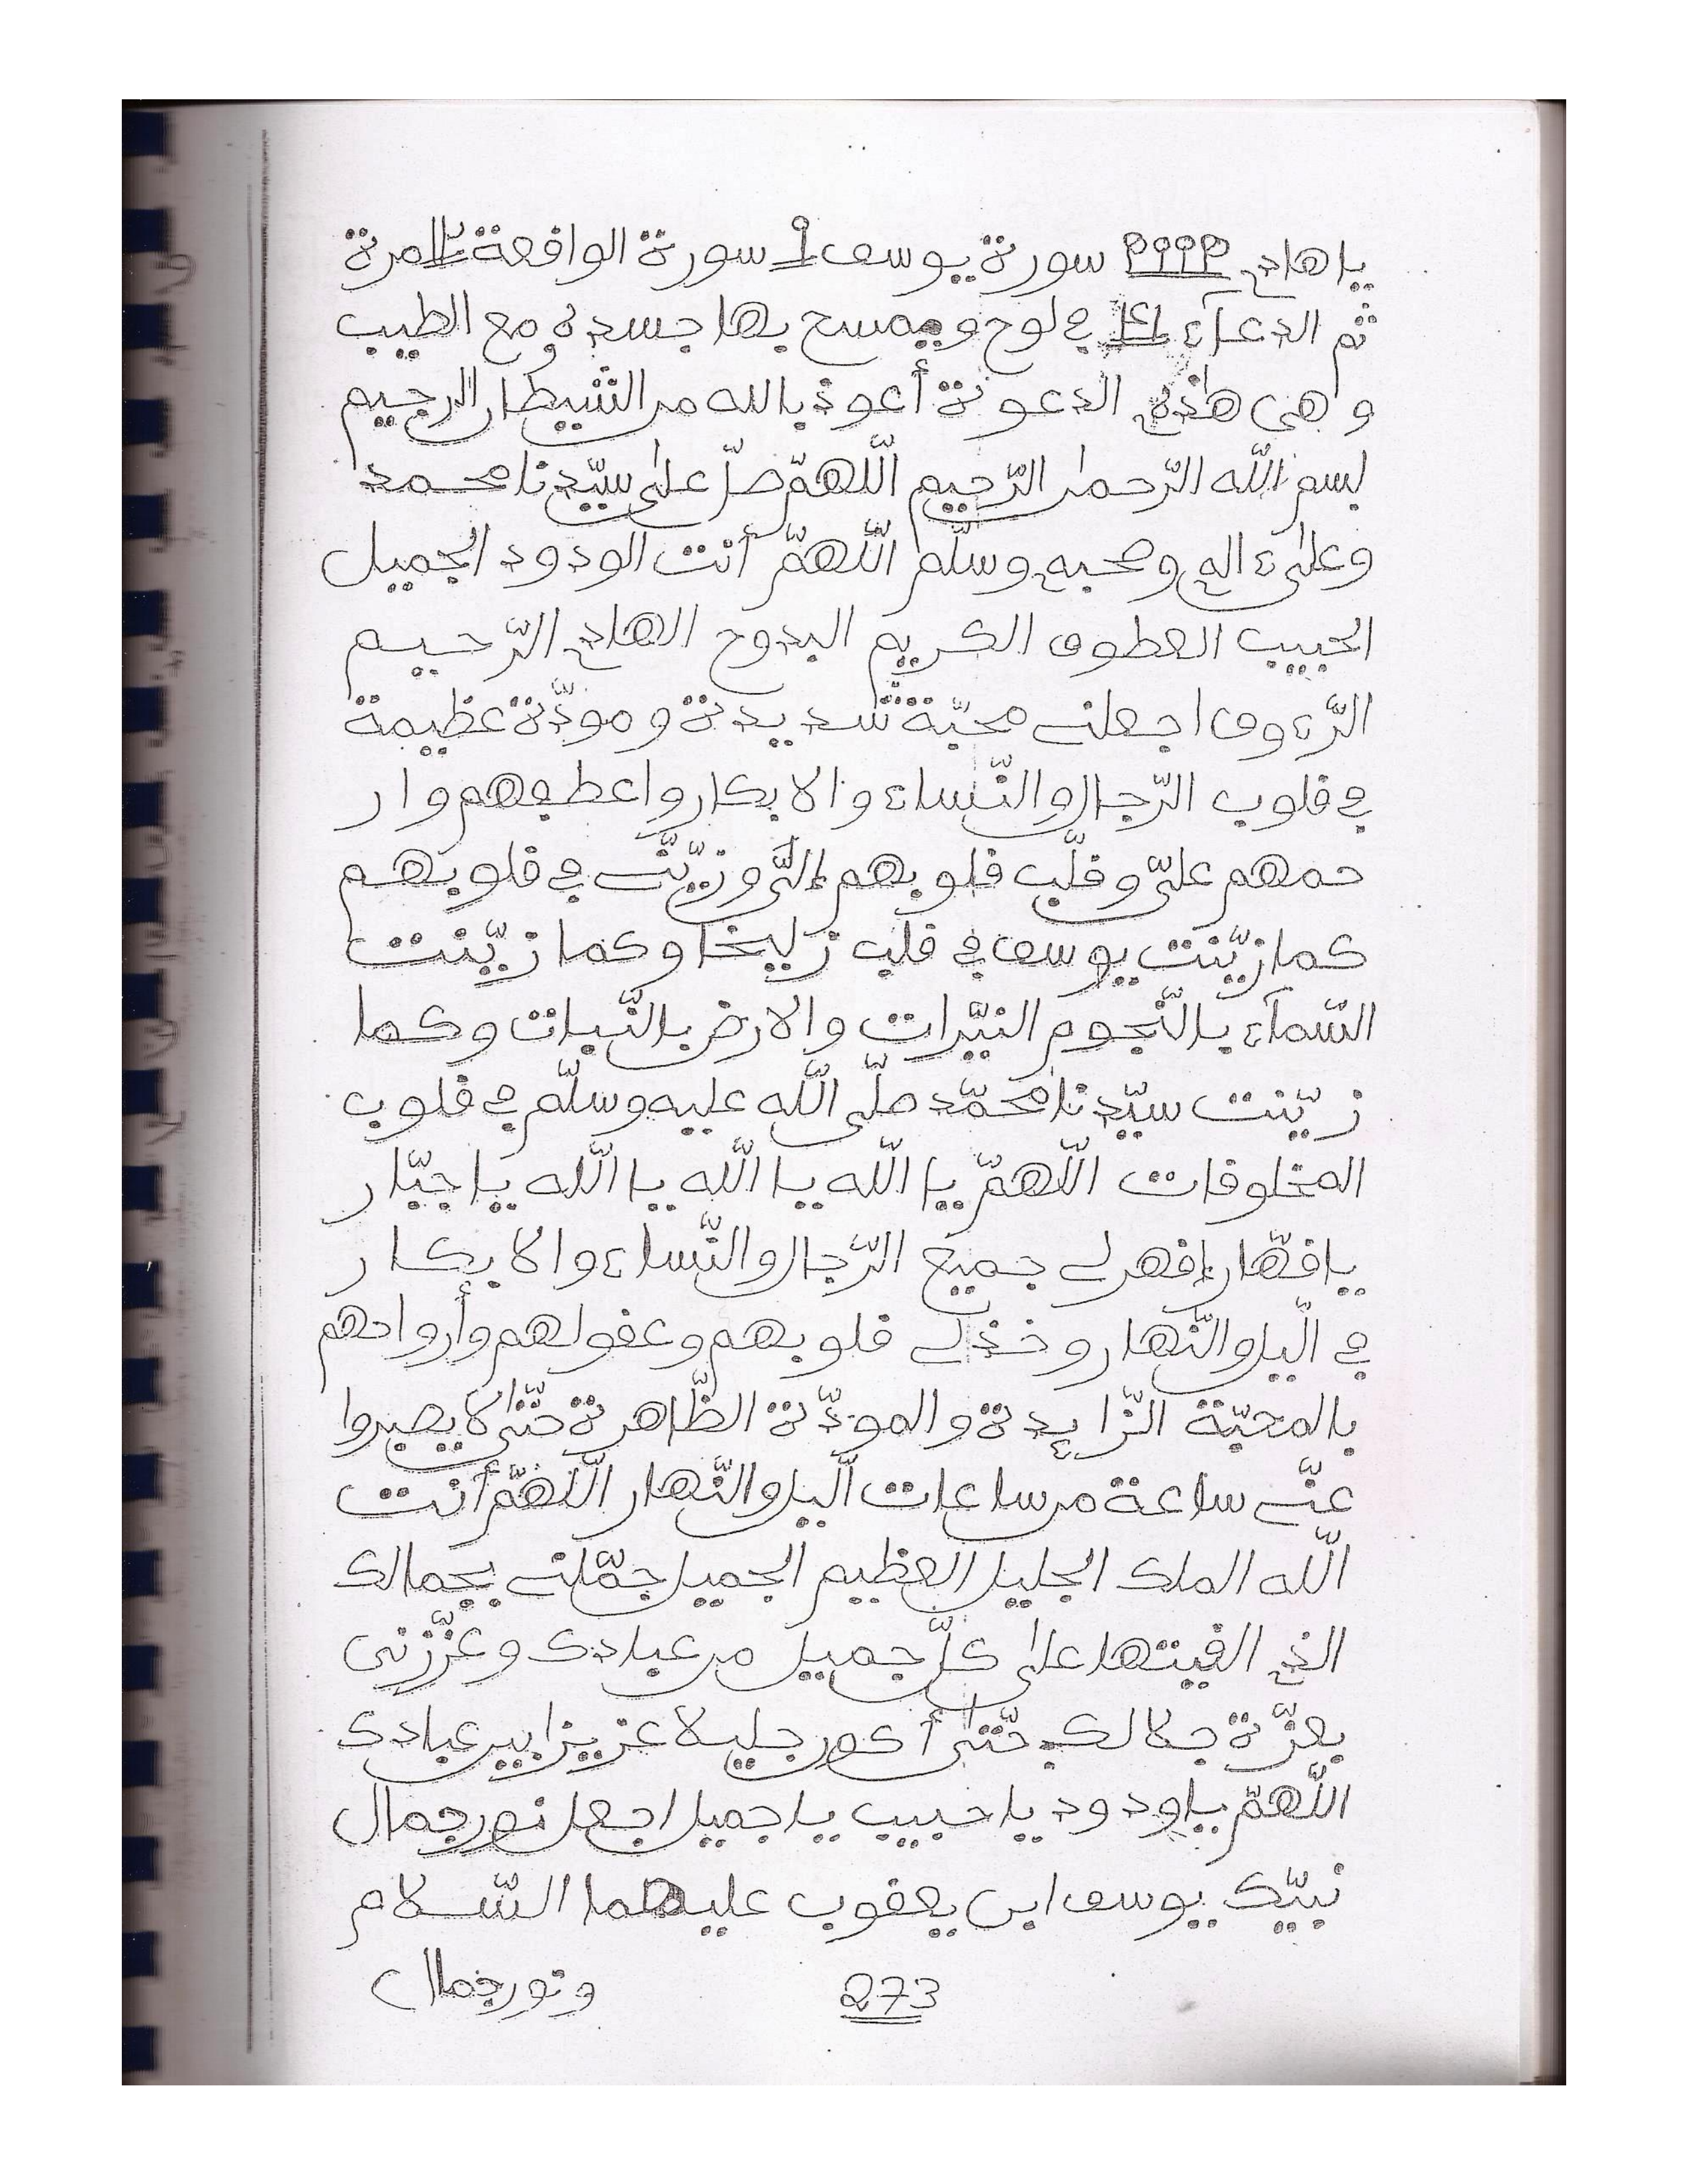 يا هادي سورة يوسف 1 سورة الواقعة مرة
ثم الدعآء في لوح ويمسح بها جسده ومع الطيب
وهي هذه الدعوة أعوذ بالله من الشيطان الرجيم
بسم الله الرّحمٰن الرّحيم اللّهمّ صلّ علىٰ سيّدنا محمد
وعلىٰ ءاله وصحبه وسلّم اللّهمّ أنت الودود الجميل
الحبيب العطوف الكريم البدوح الهادي الرّحيم
الرّءوف اجعلني محبّة شديدة ومودّة عظيمة
في قلوب الرّجال والنّساء والابكار واعطفهم وار
حمهم عليّ وقلّب قلوبهم إليّ وزيّنّي في قلوبهم
كما زيّنت يوسف في قلب زليخا وكما زيّنت
السّمآء بالنّجوم النيّرات والارض بالنّبات وكما
زيّنت سيّدنا محمّد صلّى اللّه عليه وسلّم في قلوب
المخلوقات اللّهمّ يا اللّه يا اللّه يا اللّه يا جبّار
يا قهّار إقهر لي جميع الرّجال والنّساء والابكار
في الّيل والنّهار وخذ لي قلوبهم وعقولهم وأرواحهم
بالمحبّة الزّايدة والمودّة الظّاهرة حتّىٰ لا يصبروا
عنّي ساعة من ساعات الّيل والنّهار اللّهمّ أنت
اللّه الملك الجليل العظيم الجميل جمّلني بجمالك
الذي القيتها علىٰ كلّ جميل من عبادك وعزّزني
بعزّة جلالك حتّىٰ أكون جليلا عزيزا بين عبادك
اللّهمّ يا ودود يا حبيب يا جميل اجعل نور جمال
نبيّك يوسف ابن يعقوب عليهما السّلام
273 ونور جمال